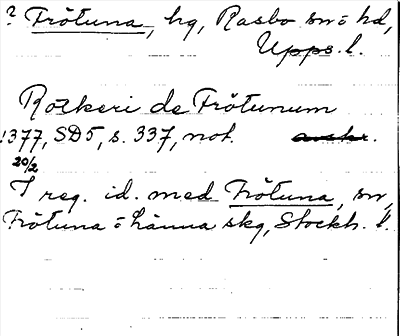 ? Frötuna, hg, Rasbo sn o hd,
Upps. l.
Rörkeri de Frötunum
1377, SD5, s. 337, not. avskr.
20/2
I reg. id. med Frötuna, sn,
Frötuna o Länna skg, Stockh. l.